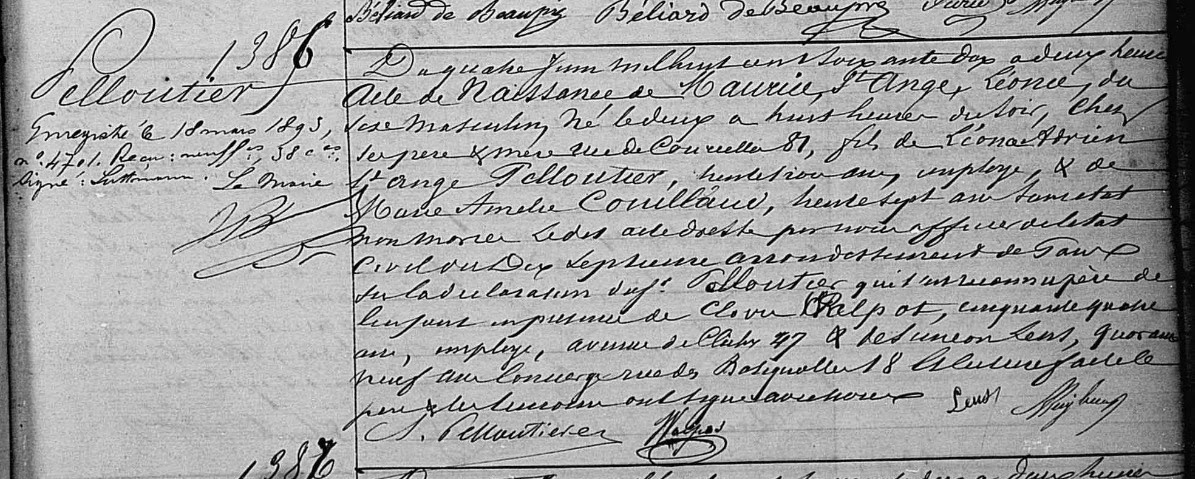 Béliard de Beaupré Béliard de Beaupré
1386
Pelloutier
Enregistré le 18 mars 1893,
n° 4701. Reçu: neuf fcs, 38 cmes.
Signé: Le Maire
Du quatre Juin mil huit cent soixante dix a deux heures
Acte de Naissance de Maurice, St Ange, Léonce, du
sexe masculin, Né le deux a huit heures du soir, chez
ses pere & mere rue de Courcelles 81, fils de Léonce Adrien
St ange Pelloutier, trente trois ans, employé, & de
Marie Amélie Couillaud, trente sept ans sans état
non mariés Ledit acte dressé par nous officier de l'état
Civil du Dix septieme arrondissement de Paris
sur la déclaration du sr Pelloutier qui s'est reconnu père de
l'enfant en présence de Clovis Malpot, cinquante quatre
ans, employé, avenue de Clichy 47 & de Simeon Lens, quarante
neuf ans Concierge rue des Batignolles 18 Lecture faite le
père & les témoins ont signé avec nous
Lens
S. Pelloutier Malpot
1387